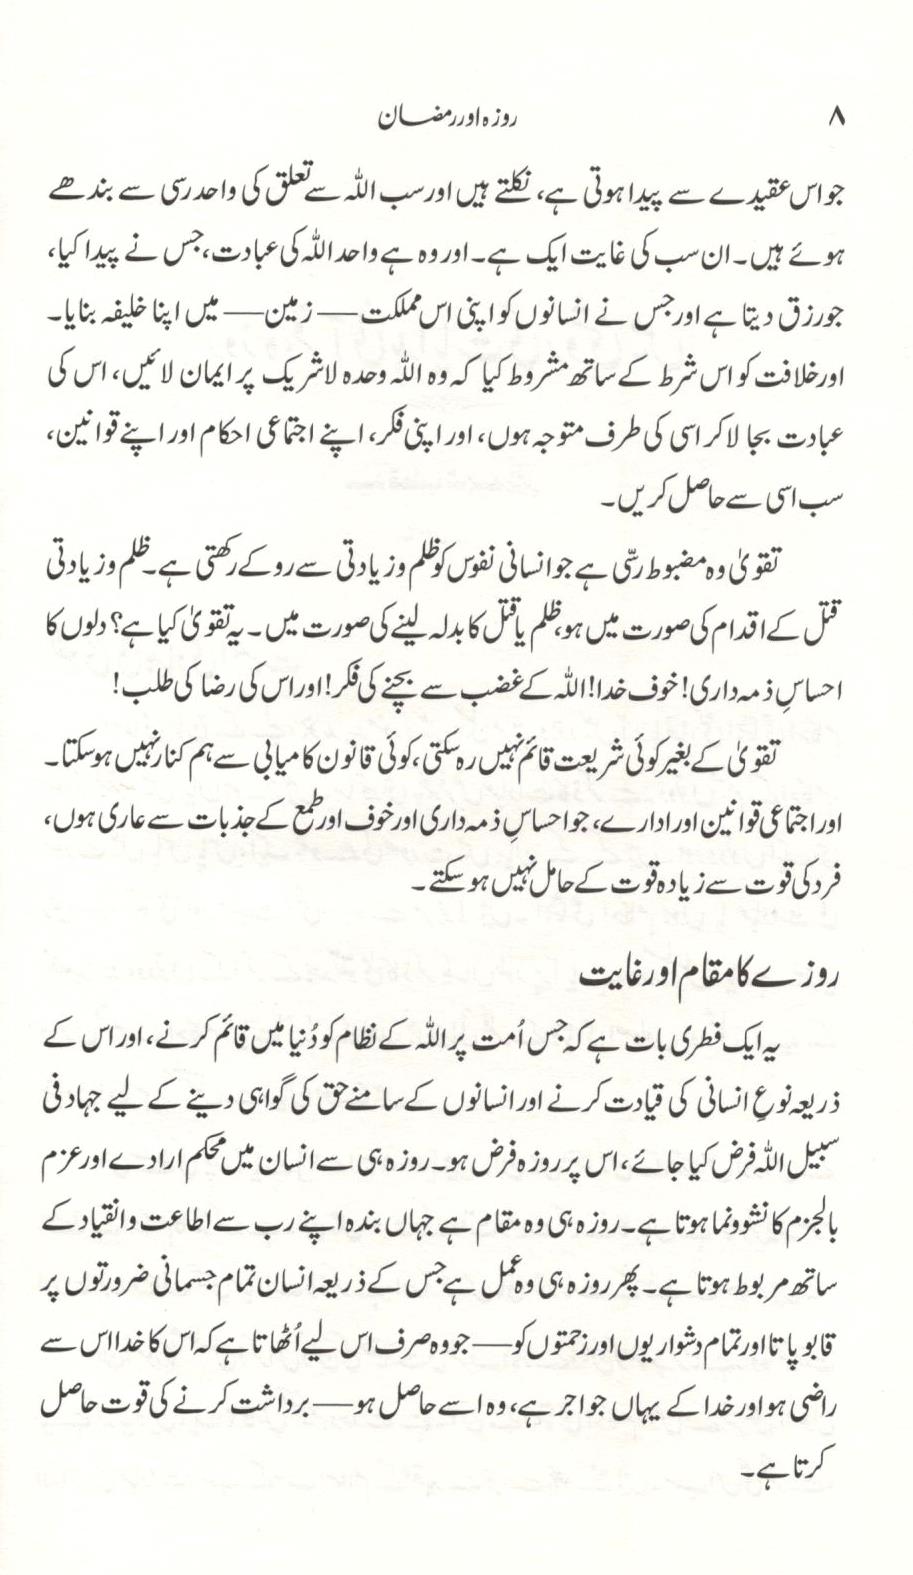 ۸
روزہ اور رمضان
جو اس عقیدے سے پیدا ہوتی ہے، نکلتے ہیں اور سب اللہ سے تعلق کی واحد رسی سے بندھے
ہوئے ہیں۔ ان سب کی غایت ایک ہے۔ اور وہ ہے واحد اللہ کی عبادت، جس نے پیدا کیا،
جو رزق دیتا ہے اور جس نے انسانوں کو اپنی اس مملکت — زمین — میں اپنا خلیفہ بنایا۔
اور خلافت کو اس شرط کے ساتھ مشروط کیا کہ وہ اللہ وحدہ لاشریک پر ایمان لائیں، اس کی
عبادت بجا لا کر اسی کی طرف متوجہ ہوں، اور اپنی فکر، اپنے اجتماعی احکام اور اپنے قوانین،
سب اسی سے حاصل کریں۔
تقویٰ وہ مضبوط رسّی ہے جو انسانی نفوس کو ظلم و زیادتی سے روکے رکھتی ہے۔ ظلم و زیادتی
قتل کے اقدام کی صورت میں ہو، ظلم یا قتل کا بدلہ لینے کی صورت میں۔ یہ تقویٰ کیا ہے؟ دلوں کا
احساسِ ذمہ داری! خوف خدا! اللہ کے غضب سے بچنے کی فکر! اور اس کی رضا کی طلب!
تقویٰ کے بغیر کوئی شریعت قائم نہیں رہ سکتی، کوئی قانون کامیابی سے ہم کنار نہیں ہوسکتا۔
اور اجتماعی قوانین اور ادارے، جو احساسِ ذمہ داری اور خوف اور طمع کے جذبات سے عاری ہوں،
فرد کی قوت سے زیادہ قوت کے حامل نہیں ہوسکتے۔
روزے کا مقام اور غایت
یہ ایک فطری بات ہے کہ جس اُمت پر اللہ کے نظام کو دُنیا میں قائم کرنے، اور اس کے
ذریعہ نوعِ انسانی کی قیادت کرنے اور انسانوں کے سامنے حق کی گواہی دینے کے لیے جہاد فی
سبیل اللہ فرض کیا جائے، اس پر روزہ فرض ہو۔ روزہ ہی سے انسان میں محکم ارادے اور عزم
بالجزم کا نشوونما ہوتا ہے۔ روزہ ہی وہ مقام ہے جہاں بندہ اپنے رب سے اطاعت و انقیاد کے
ساتھ مربوط ہوتا ہے۔ پھر روزہ ہی وہ عمل ہے جس کے ذریعہ انسان تمام جسمانی ضرورتوں پر
قابو پاتا اور تمام دشواریوں اور زحمتوں کو — جو وہ صرف اس لیے اُٹھاتا ہے کہ اس کا خدا اس سے
راضی ہو اور خدا کے یہاں جو اجر ہے، وہ اسے حاصل ہو — برداشت کرنے کی قوت حاصل
کرتا ہے۔